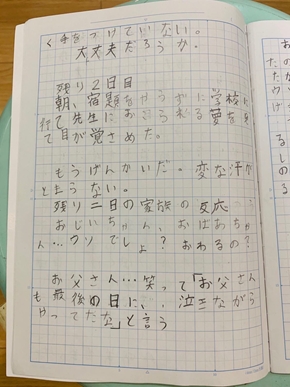 く手をつけていない。
大丈夫だろうか。
残り2日目
朝、宿題をやらずに学校に
行て先生におこられる夢を見
て目が覚さめた。
もうげんかいだ。変な汗が
とまらない。
残り二日の家族の反応…
おじいちゃん、おばあちゃ
ん…ウソでしょ?おわるの?
お父さん…笑って「お父さん
も最後の日に、泣きながら
やってたな」と言う